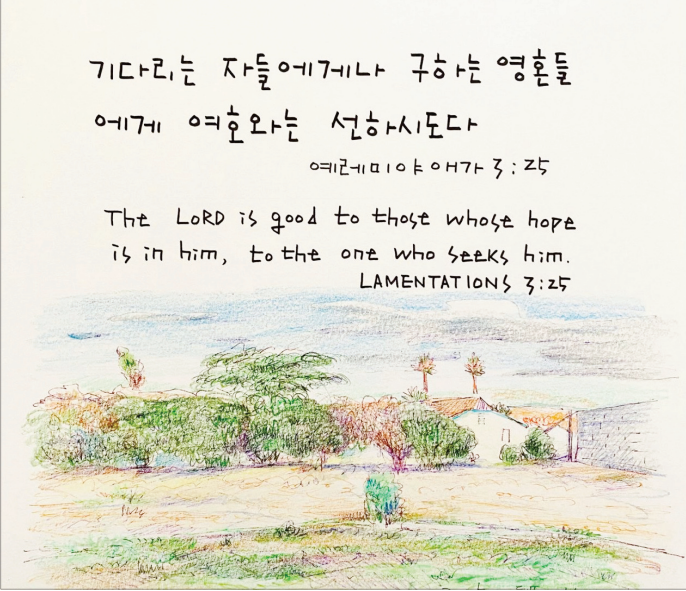 기다리는 자들에게나 구하는 영혼들
에게 여호와는 선하시도다
예레미야 애가 3:25
The LORD is good to those whose hope
is in him, to the one who seeks him.
LAMENTATIONS 3:25